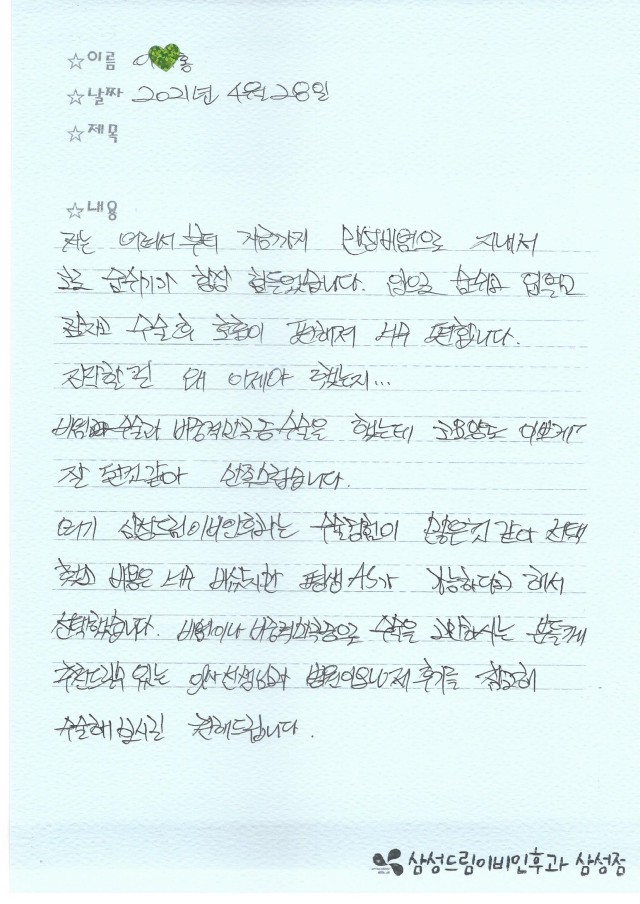 ☆이름 이 홍
☆날짜 2021년 4월 28일
☆제목
☆내용
저는 어려서부터 지금까지 만성비염으로 지내서
코로 숨쉬기가 항상 힘들었습니다. 입으로 숨쉬고
잠자고 수술 후 호흡이 편해져 너무 편합니다.
진작할 걸 왜 이제야 했는지...
비염 수술과 비중격만곡증수술을 했는데 코모양도 이쁘게
잘 된것같아 만족스럽습니다.
여기 삼성드림이비인후과는 수술경험이 많은것 같아 선택
했고 비용은 너무 비쌌지만 평생 AS가 가능하다고 해서
선택하였습니다. 비염이나 비중격만곡증으로 수술을 고민하시는 분들께
추천드릴수 있는 의사선생님과 병원이오니 제 후기를 참고해
수술해 보시길 권해드립니다.
삼성드림이비인후과 삼성점